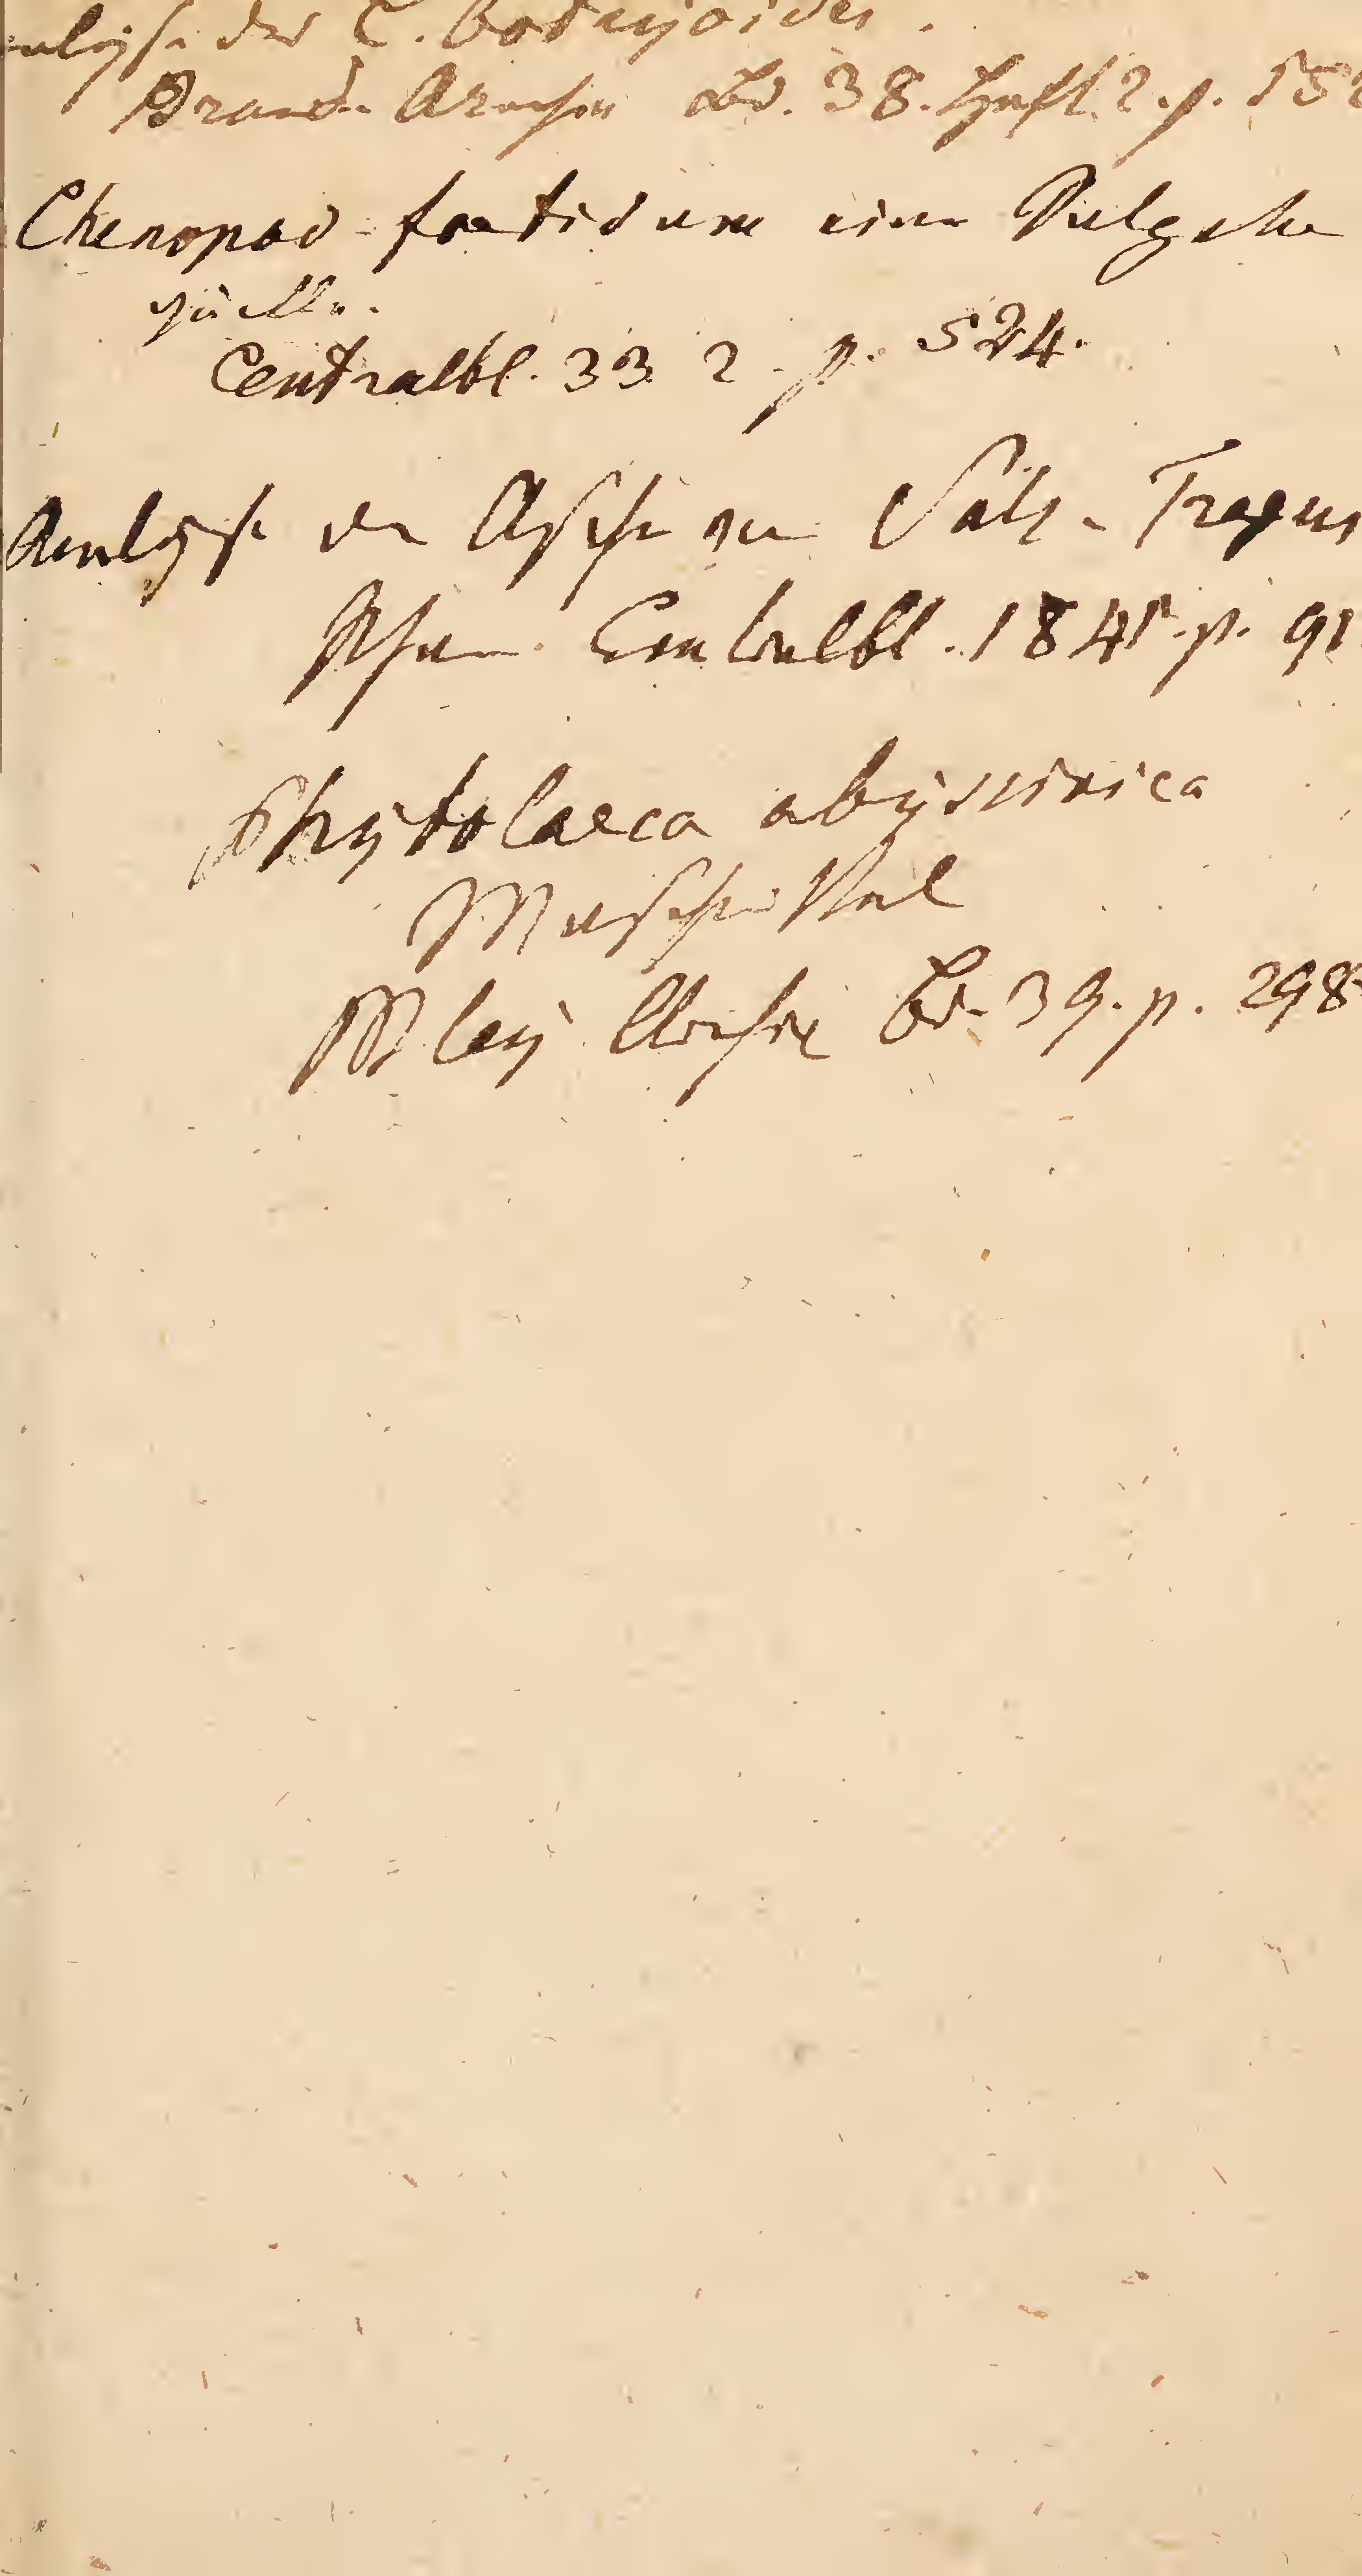 des C. Botryoides.
Brand. Archiv Bd. 38. Heft 2. p.
Chenopod. foetidum eine
Centralbl. 33 2. p. 524.
Analyse der Asche von Sals. Tragus
Pharm. Centralbl. 1845. p. 91
Phytolacca abyssinica
Bley Archiv Bd. 39. p. 298